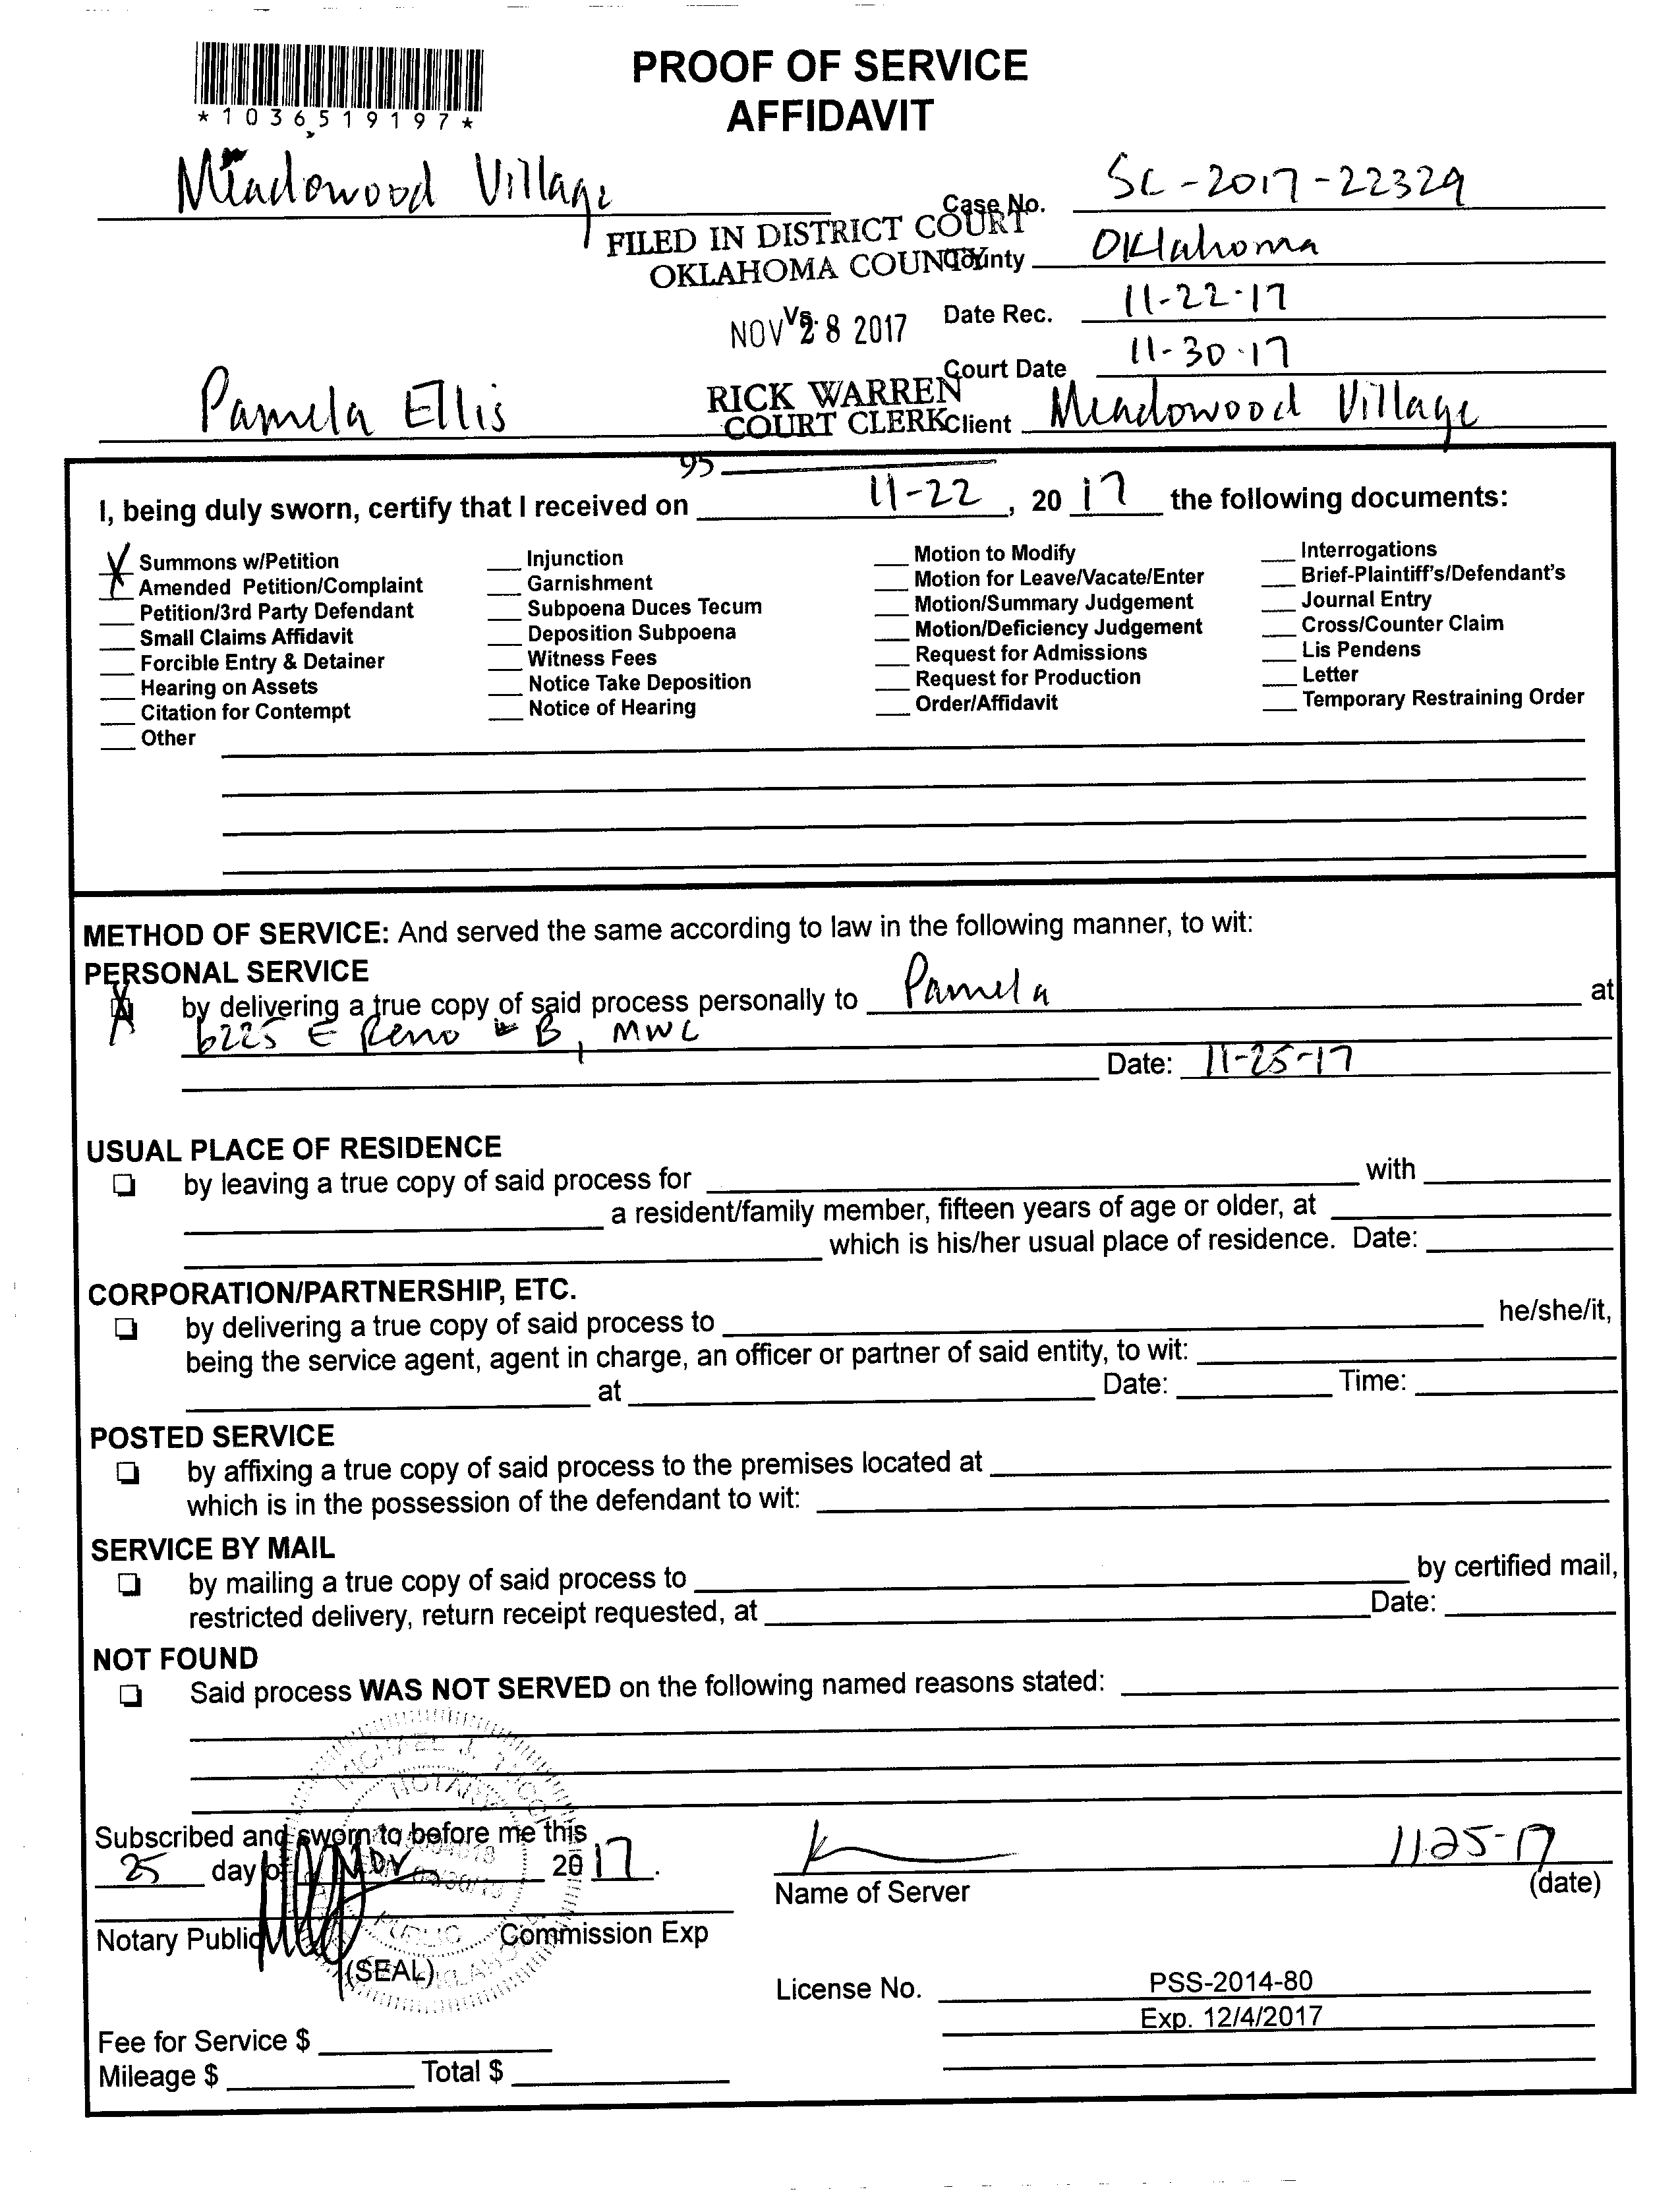 PROOF OF SERVICE
AFFIDAVIT
*1036519197*
Meadowood Village
Case No. SC-2017-22329
FILED IN DISTRICT COURT
OKLAHOMA COUNTY
County Oklahoma
Vs.
NOV 28 2017
Date Rec. 11-22-17
Court Date 11-30-17
Pamela Ellis
RICK WARREN
COURT CLERK
Client Meadowood Village
95
I, being duly sworn, certify that I received on 11-22, 20 17 the following documents:
X Summons w/Petition
Amended Petition/Complaint
Petition/3rd Party Defendant
Small Claims Affidavit
Forcible Entry & Detainer
Hearing on Assets
Citation for Contempt
Other
Injunction
Garnishment
Subpoena Duces Tecum
Deposition Subpoena
Witness Fees
Notice Take Deposition
Notice of Hearing
Motion to Modify
Motion for Leave/Vacate/Enter
Motion/Summary Judgement
Motion/Deficiency Judgement
Request for Admissions
Request for Production
Order/Affidavit
Interrogations
Brief-Plaintiff's/Defendant's
Journal Entry
Cross/Counter Claim
Lis Pendens
Letter
Temporary Restraining Order
METHOD OF SERVICE: And served the same according to law in the following manner, to wit:
PERSONAL SERVICE
X by delivering a true copy of said process personally to Pamela at
6225 E Reno # B, MWC
Date: 11-25-17
USUAL PLACE OF RESIDENCE
by leaving a true copy of said process for with
a resident/family member, fifteen years of age or older, at
which is his/her usual place of residence. Date:
CORPORATION/PARTNERSHIP, ETC.
by delivering a true copy of said process to he/she/it,
being the service agent, agent in charge, an officer or partner of said entity, to wit:
at Date: Time:
POSTED SERVICE
by affixing a true copy of said process to the premises located at
which is in the possession of the defendant to wit:
SERVICE BY MAIL
by mailing a true copy of said process to by certified mail,
restricted delivery, return receipt requested, at Date:
NOT FOUND
Said process WAS NOT SERVED on the following named reasons stated:
Subscribed and sworn to before me this
25 day of Nov 2017.
Notary Public Commission Exp
(SEAL)
MICHAEL J.
NOTARY
PUBLIC
11-25-17
Name of Server (date)
License No. PSS-2014-80
Exp. 12/4/2017
Fee for Service $
Mileage $ Total $